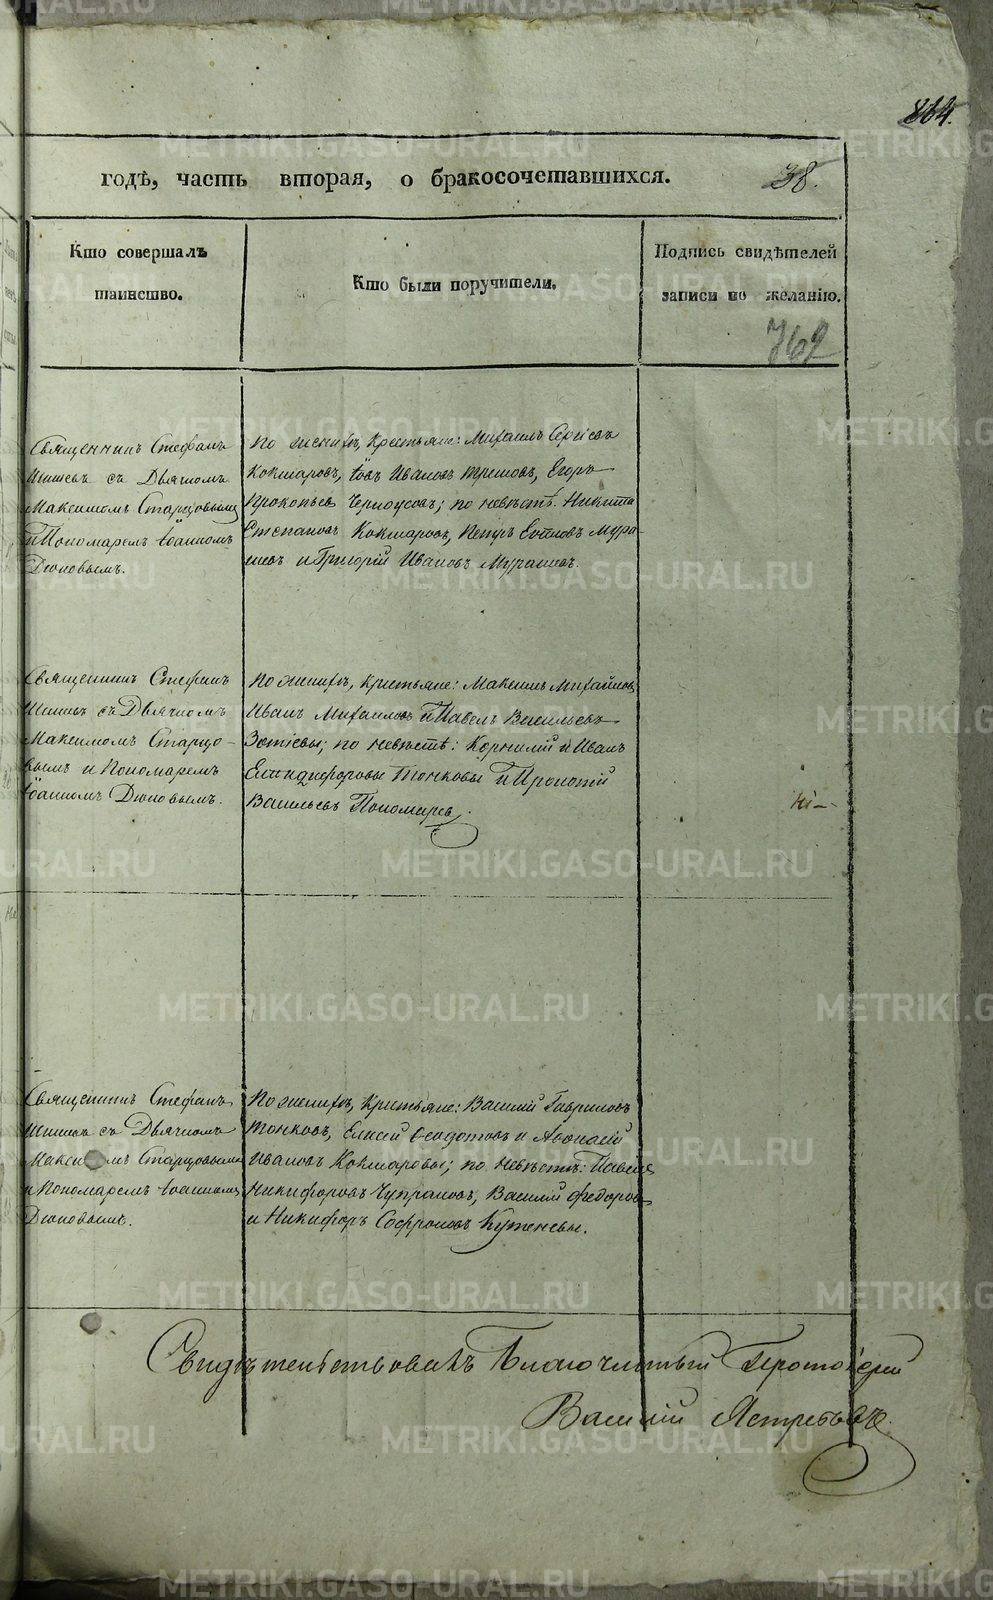 864.
годѣ, часть вторая, о бракосочетавшихся.
38.
Кто совершалъ
таинство.
Кто были поручители.
Подпись свидѣтелей
записи по желанію.
762
Священникъ Стефанъ
съ Дьячкомъ
Максимомъ Старцовымъ
и Пономаремъ Іоанномъ
Дюковымъ.
По женихѣ, Крестьяне: Михаилъ Сергіевъ
Кокшаровъ, Іовъ Ивановъ Егоръ
Прокопьевъ Черноусовъ; по невѣстѣ: Никита
Степановъ Кокшаровъ, Петръ Мура-
шевъ и Григорій Ивановъ Мурашевъ.
Священникъ Стефанъ
съ Дьячкомъ
Максимомъ Старцо-
вымъ и Пономаремъ
Іоанномъ Дюковымъ.
По женихѣ, Крестьяне: Максимъ Михайловъ,
Иванъ Михаиловъ и Павелъ Васильевъ
по невѣстѣ: Корнилій и Иванъ
Тонковы и Прокопій
Васильевъ Пономаревъ.
Священникъ Стефанъ
съ Дьячкомъ
Максимомъ Старцовымъ
и Пономаремъ Іоанномъ
Дюковымъ.
По женихѣ, Крестьяне: Василій Гавриловъ
Тонковъ, Елисей Ѳеодотовъ и Аѳонасій
Ивановъ Кокшаровы; по невѣстѣ: Павелъ
Никифоровъ Чупраковъ, Василій Федоровъ
и Никифоръ Софроновъ
Свидѣтельствовалъ Благочинный Протоіерей
Василій Ястребовъ.
METRIKI.GASO-URAL.RU